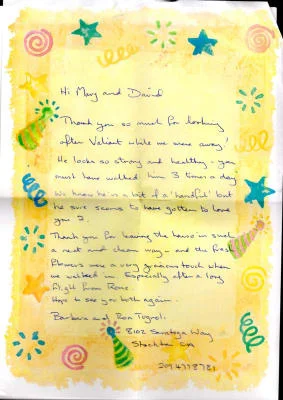 Hi Mary and David
Thank you so much for looking
after Valiant while we were away!
He looks so strong and healthy - you
must have walked him 3 times a day
We know he is a bit of a 'handful' but
he sure seems to have gotten to love
you 2.
Thank you for leaving the house in such
a neat and clean way - and the fresh
flowers were a very gracious touch when
we walked in. Especially after a long
flight from Rome.
Hope to see you both again.
Barbara and Ron
8102 Saratoga Way
Stockton CA
209 477 8781